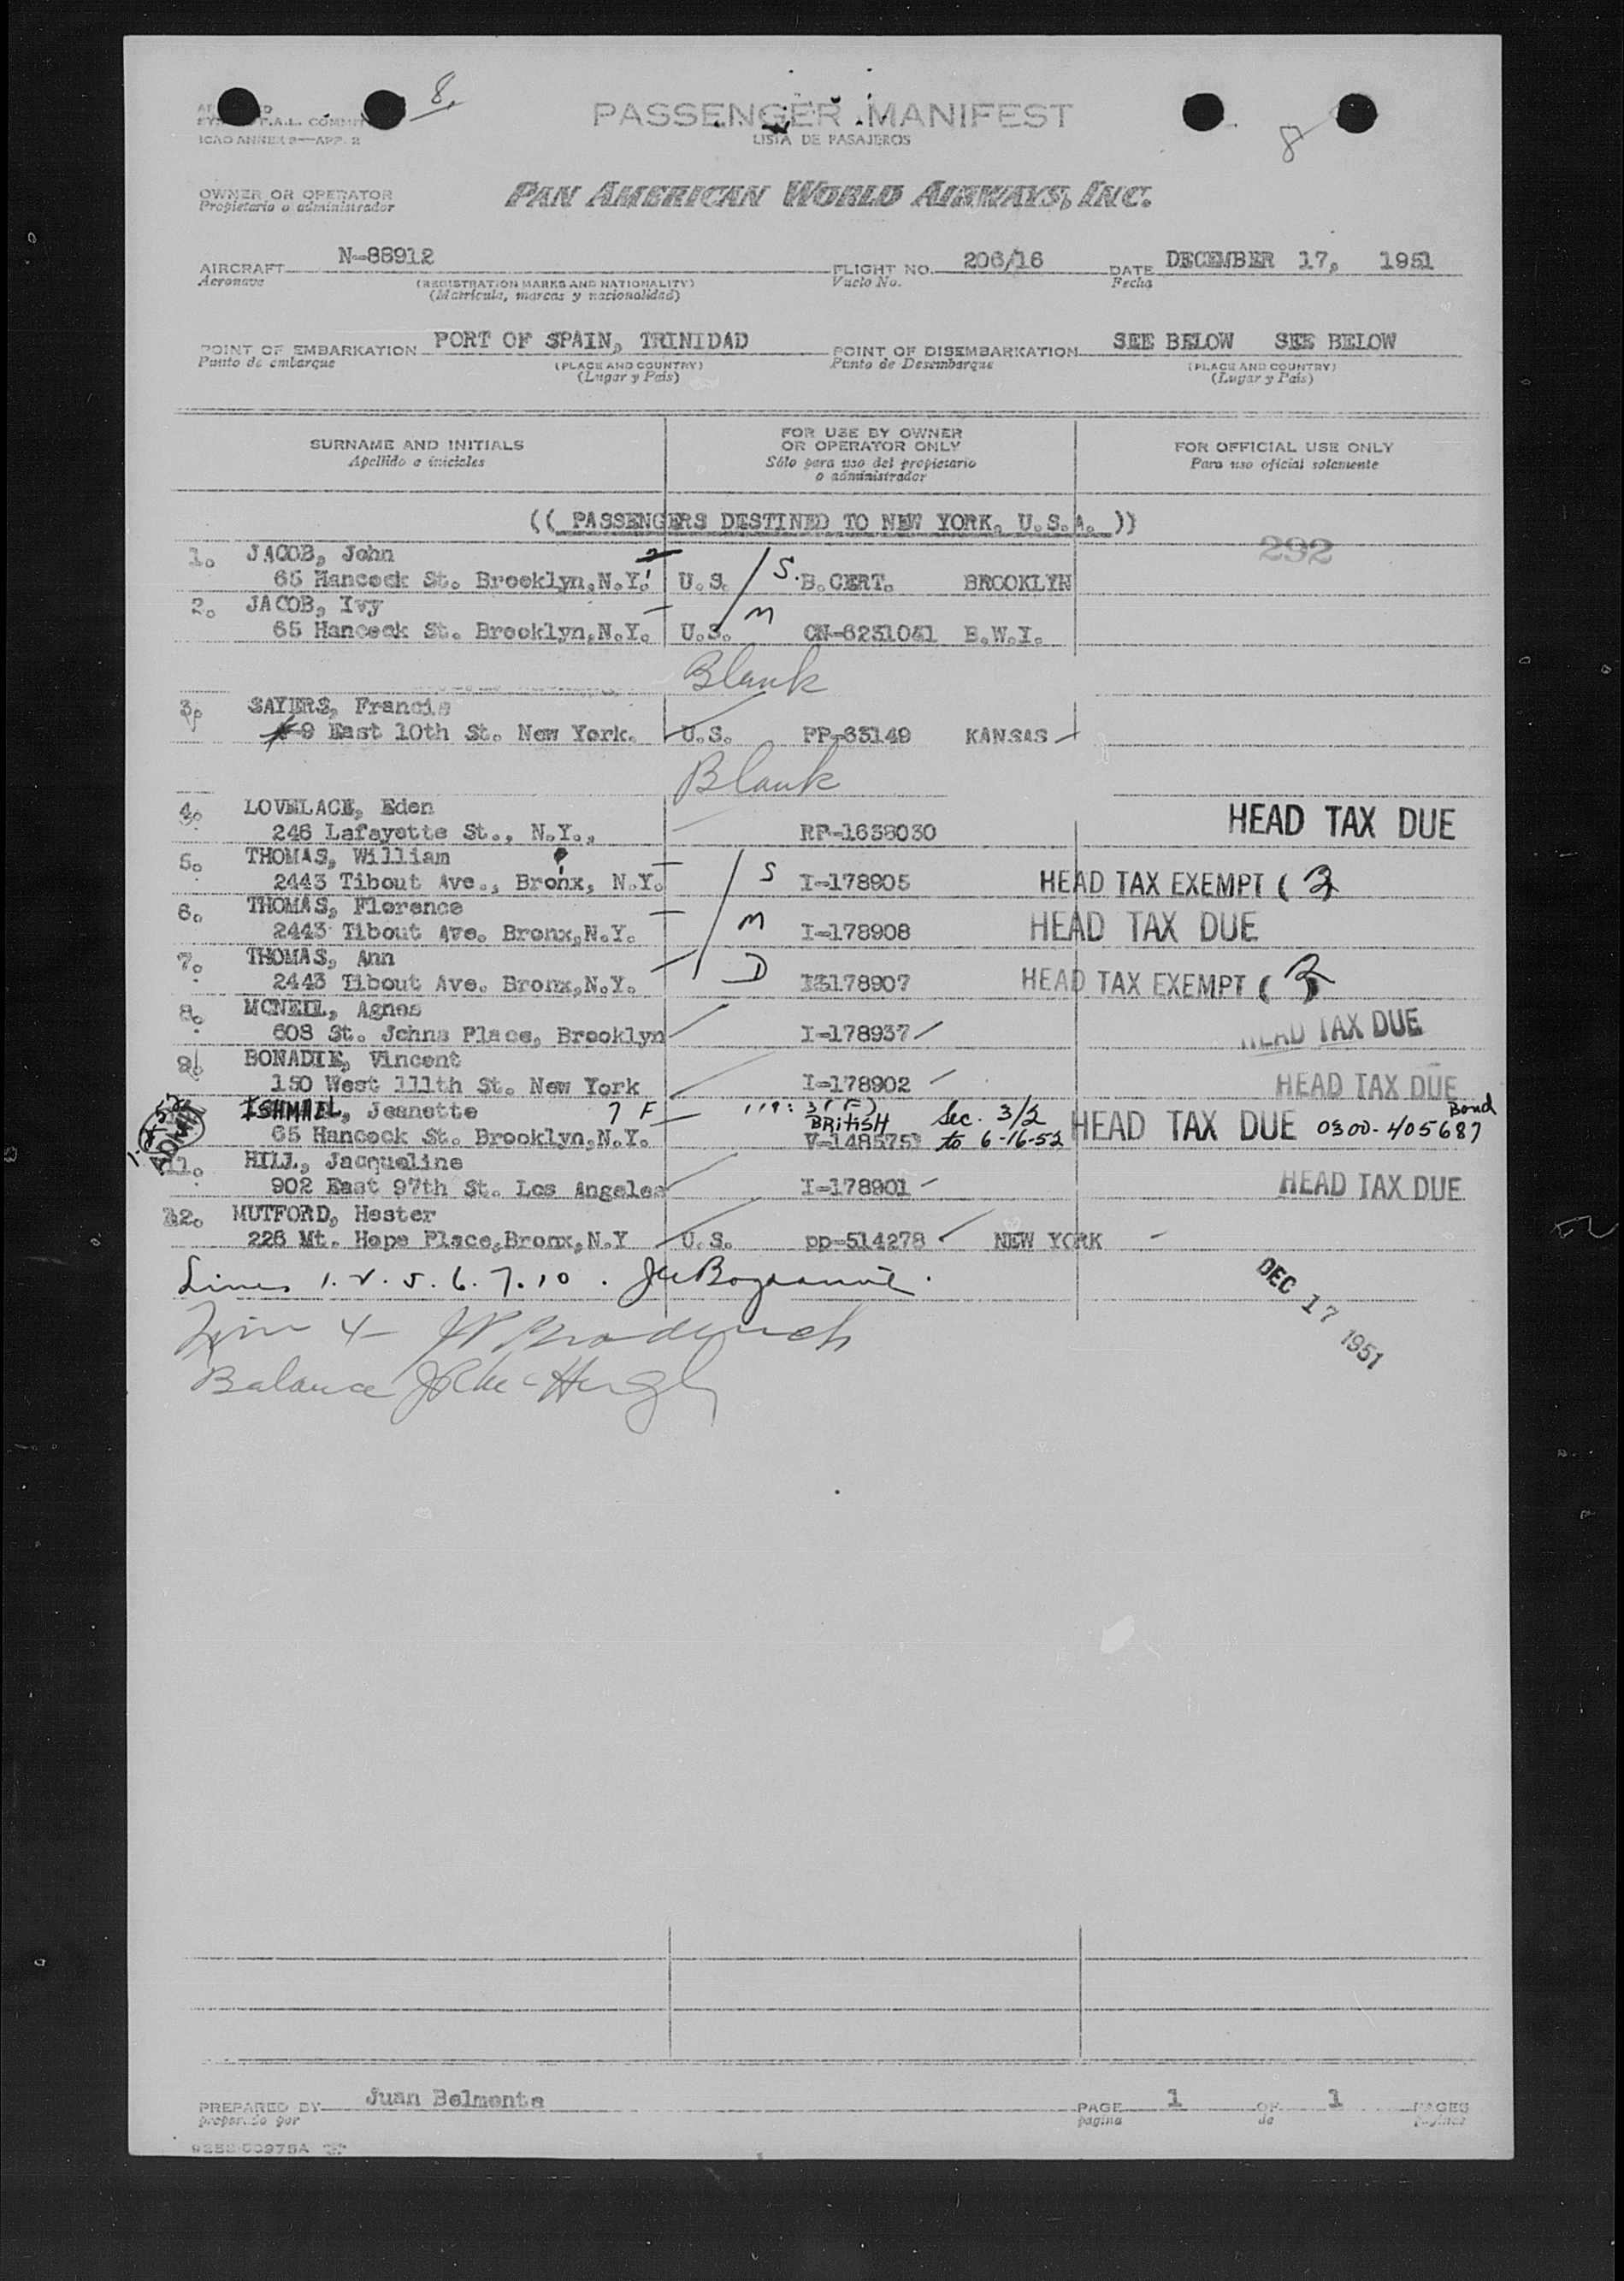 8.
PASSENGER MANIFEST
LISTA DE PASAJEROS
ICAO ANNEX 9—APP. 2
8
OWNER OR OPERATOR
Propietario o administrador
PAN AMERICAN WORLD AIRWAYS, INC.
AIRCRAFT N-88912 FLIGHT NO. 206/16 DATE DECEMBER 17, 1951
Aeronave (REGISTRATION MARKS AND NATIONALITY) Vuelo No. Fecha
(Matrícula, marcas y nacionalidad)
POINT OF EMBARKATION PORT OF SPAIN, TRINIDAD POINT OF DISEMBARKATION SEE BELOW SEE BELOW
Punto de embarque (PLACE AND COUNTRY) Punto de Desembarque (PLACE AND COUNTRY)
(Lugar y País) (Lugar y País)
SURNAME AND INITIALS FOR USE BY OWNER OR OPERATOR ONLY FOR OFFICIAL USE ONLY
Apellido e iniciales Sólo para uso del propietario o administrador Para uso oficial solamente
(( PASSENGERS DESTINED TO NEW YORK, U.S.A. ))
292
1. JACOB, John
65 Hancock St. Brooklyn,N.Y. U.S. S. B.CERT. BROOKLYN
2. JACOB, Ivy
65 Hancock St. Brooklyn,N.Y. U.S. M CN-6231041 B.W.I.
Blank
3. SAYERS, Francis
9 East 10th St. New York. U.S. PP-63149 KANSAS
Blank
4. LOVELACE, Eden
246 Lafayette St., N.Y., RP-1638030 HEAD TAX DUE
5. THOMAS, William
2443 Tibout Ave., Bronx, N.Y. S I-178905 HEAD TAX EXEMPT ( 3
6. THOMAS, Florence
2443 Tibout Ave. Bronx,N.Y. M I-178908 HEAD TAX DUE
7. THOMAS, Ann
2443 Tibout Ave. Bronx,N.Y. D I-178907 HEAD TAX EXEMPT ( 3
8. MCNEIL, Agnes
608 St. Johns Place, Brooklyn I-178937 HEAD TAX DUE
9. BONADIE, Vincent
150 West 111th St. New York I-178902 HEAD TAX DUE
ISHMAEL, Jeanette 7 F BRITISH Sec. 3/2 Bond
65 Hancock St. Brooklyn,N.Y. V-1485751 to 6-16-52 HEAD TAX DUE 0300-405687
ADMIT
11. HILL, Jacqueline
902 East 97th St. Los Angeles I-178901 HEAD TAX DUE
12. MUTFORD, Hester
226 Mt. Hope Place,Bronx,N.Y U.S. pp-514278 NEW YORK
Lines 1. 2. 5. 6. 7. 10.
DEC 17 1951
Balance
PREPARED BY Juan Belmonte PAGE 1 OF 1 PAGES
preparado por página de páginas